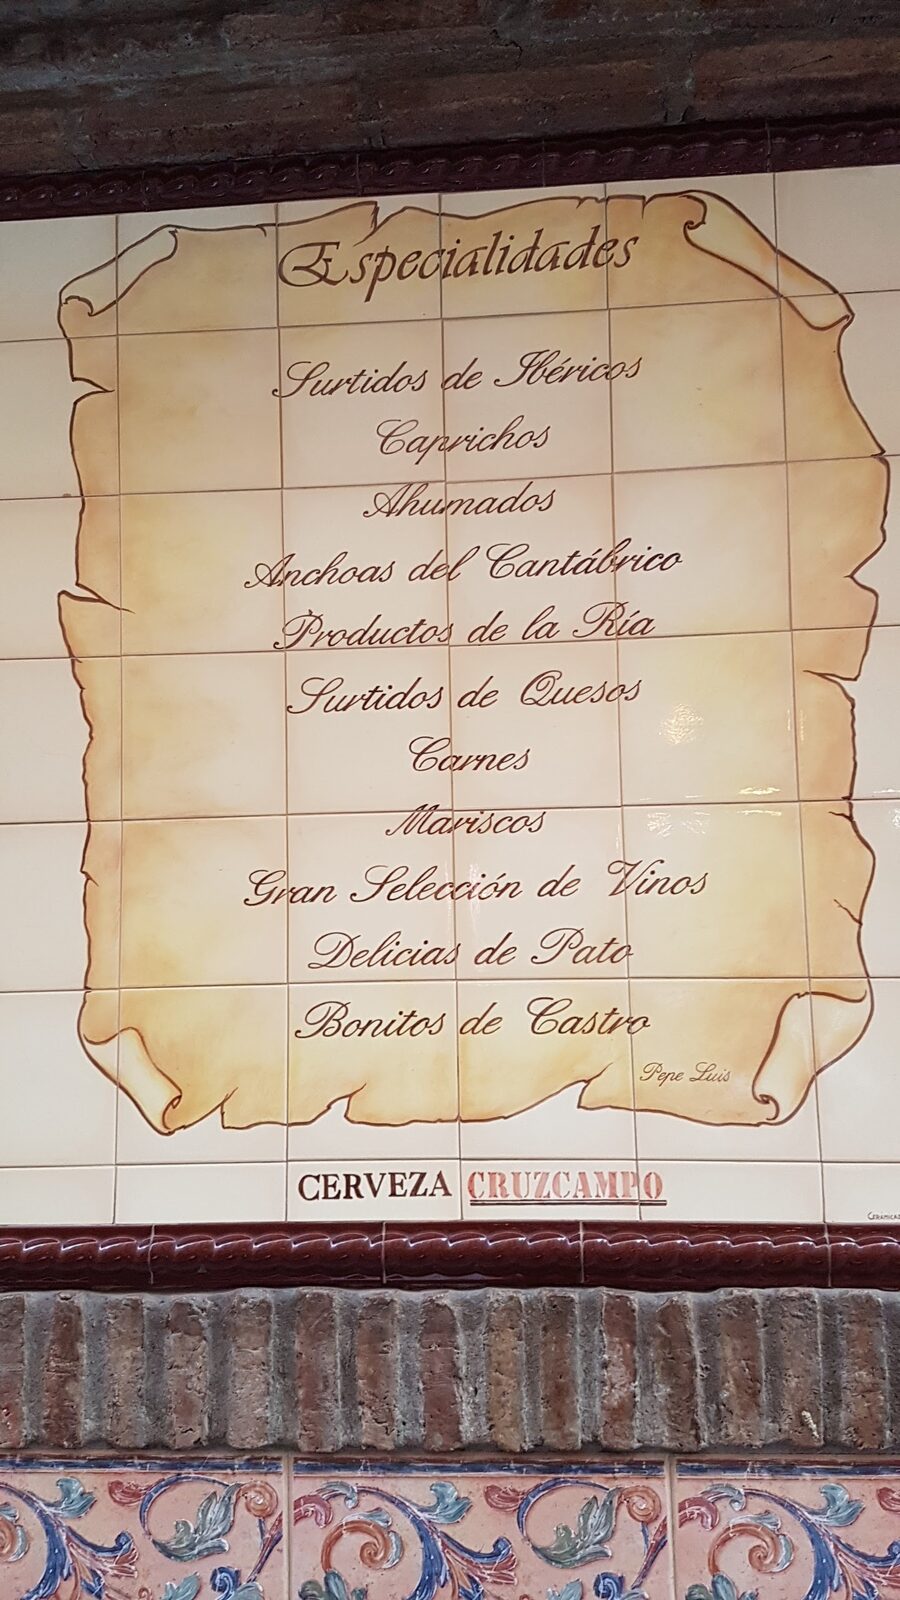 Especialidades
Surtidos de Ibéricos
Caprichos
Ahumados
Anchoas del Cantábrico
Productos de la Ría
Surtidos de Quesos
Carnes
Mariscos
Gran Selección de Vinos
Delicias de Pato
Bonitos de Castro
Pepe Luis
CERVEZA CRUZCAMPO